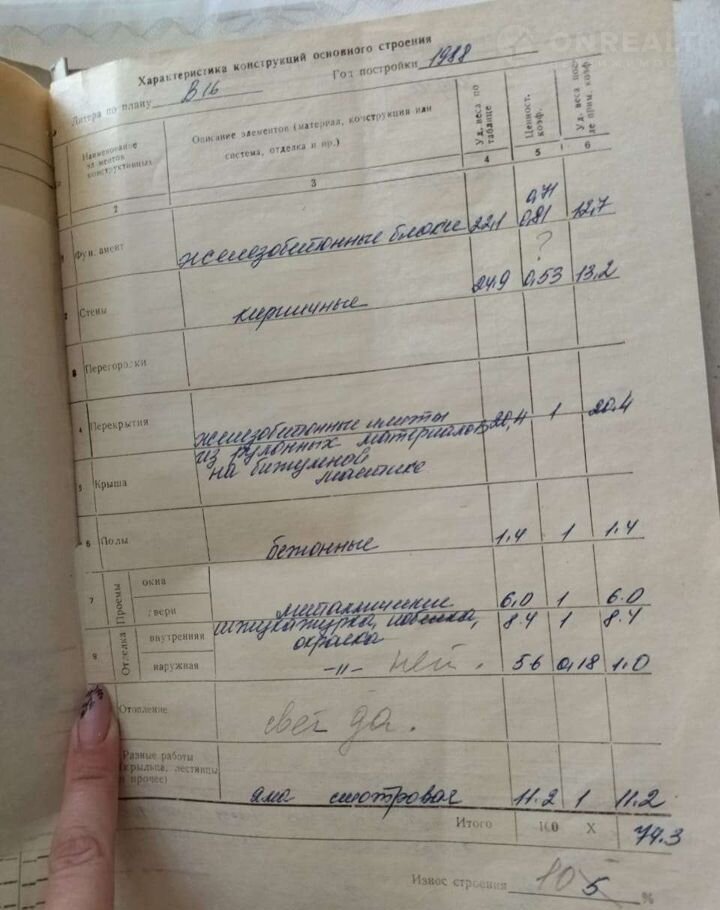 ONREALT
Характеристика конструкций основного строения
Литера по плану В16 Год постройки 1988
Наименование элементов конструктивных
Описание элементов (материал, конструкция или система, отделка и пр.)
Уд. веса по таблице
Ценност. коэф.
Уд. веса пос- ле прим. коэф.
2 3 4 5 6
0,71
Фундамент железобетонные блоки 22,1 0,81 12,7
?
2 Стены кирпичные 24.9 0,53 13.2
Перегородки
4 Перекрытия железобетонные плиты 20,4 1 20.4
из рулонных материалов
5 Крыша на битумной
мастике
6 Полы бетонные 1.4 1 1.4
7 Проемы окна
двери металлические 6.0 1 6.0
8 Отделка внутренняя штукатурка, побелка, 8.4 1 8.4
окраска
наружная -"- нет. 5.6 0,18 1.0
Отопление свет да.
Разные работы
(крыльца, лестницы
и прочее) яма смотровая 11.2 1 11.2
Итого 100 X 74.3
Износ строения 10 5 %